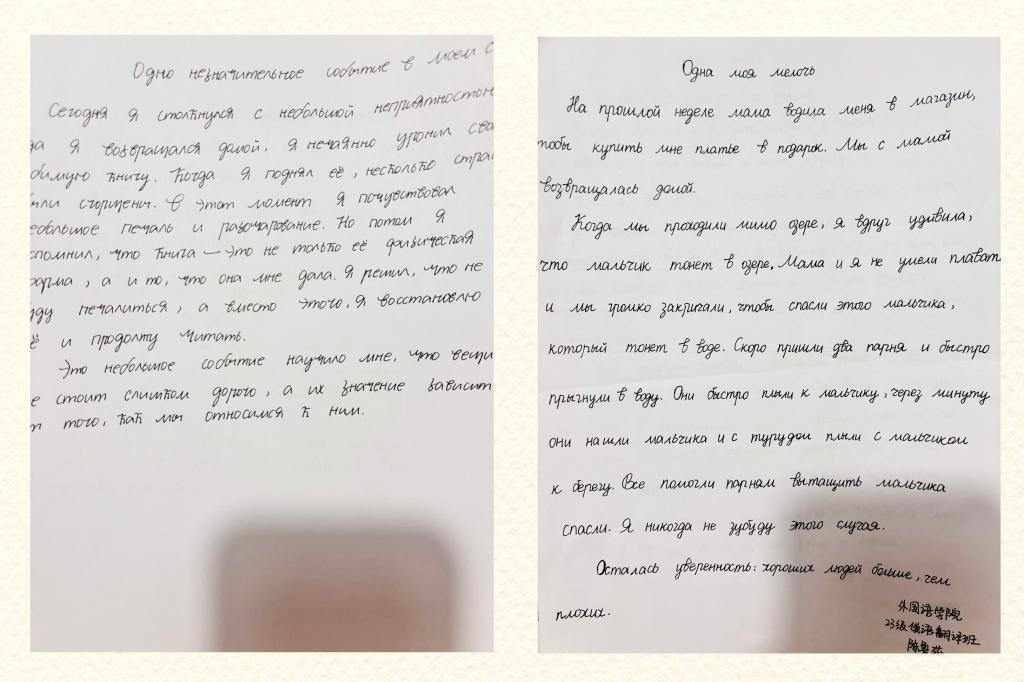 Одно незначительное событие в моем
Сегодня я столкнулся с небольшой неприятностью
да я возвращался домой. Я нечаянно уронил сва
бимую книгу. Когда я поднял её, несколько стран
ыли сторщены. В этот момент я почувствовал
ебольшое печаль и разочарование. Но потом я
спомнил, что книга — это не только её физическая
форма, а и то, что она мне дала. Я решил, что не
уду печалиться, а вместо этого, я восстановлю
ё и продолжу читать.
Это небольшое событие научило мне, что вещи
е стоит слишком дорого, а их значение зависит
т того, как мы относимся к ним.
Одна моя мелочь
На прошлой неделе мама водила меня в магазин,
тобы купить мне платье в подарок. Мы с мамой
возвращалась домой.
Когда мы проходили мимо озере, я вдруг удивила,
что мальчик тонет в озере. Мама и я не умели плават
и мы громко закричали, чтобы спасли этого мальчика,
который тонет в воде. Скоро пришли два парня и быстро
прыгнули в воду. Они быстро плыли к мальчику, через минуту
они нашли мальчика и с турудом плыли с мальчиком
к берегу. Все помогли парням вытащить мальчика
спасли. Я никогда не зубуду этого случая.
Осталась уверенность: хороших людей больше, чем
плохих.
外国语学院
23级俄语翻译班
陈